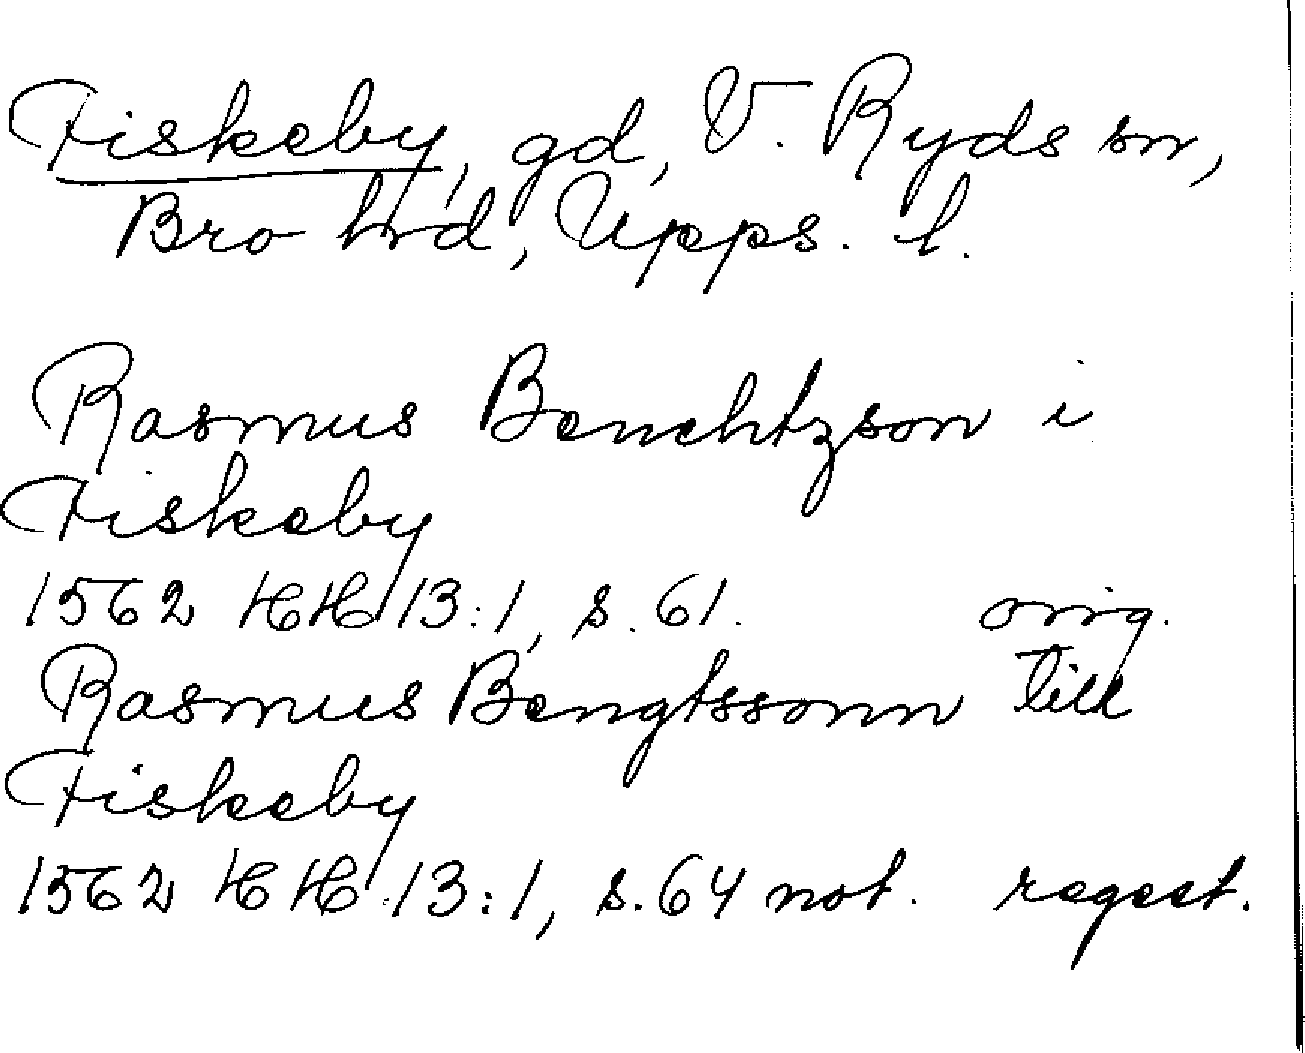 Fiskeby, gd, V. Ryds sn,
Bro hrd, Upps. l.
Rasmus Benchtzson i
Fiskeby
1562 HH 13:1, s. 61. orig.
Rasmus Bengtssonn till
Fiskeby
1562 HH 13:1, s. 64 not. regest.